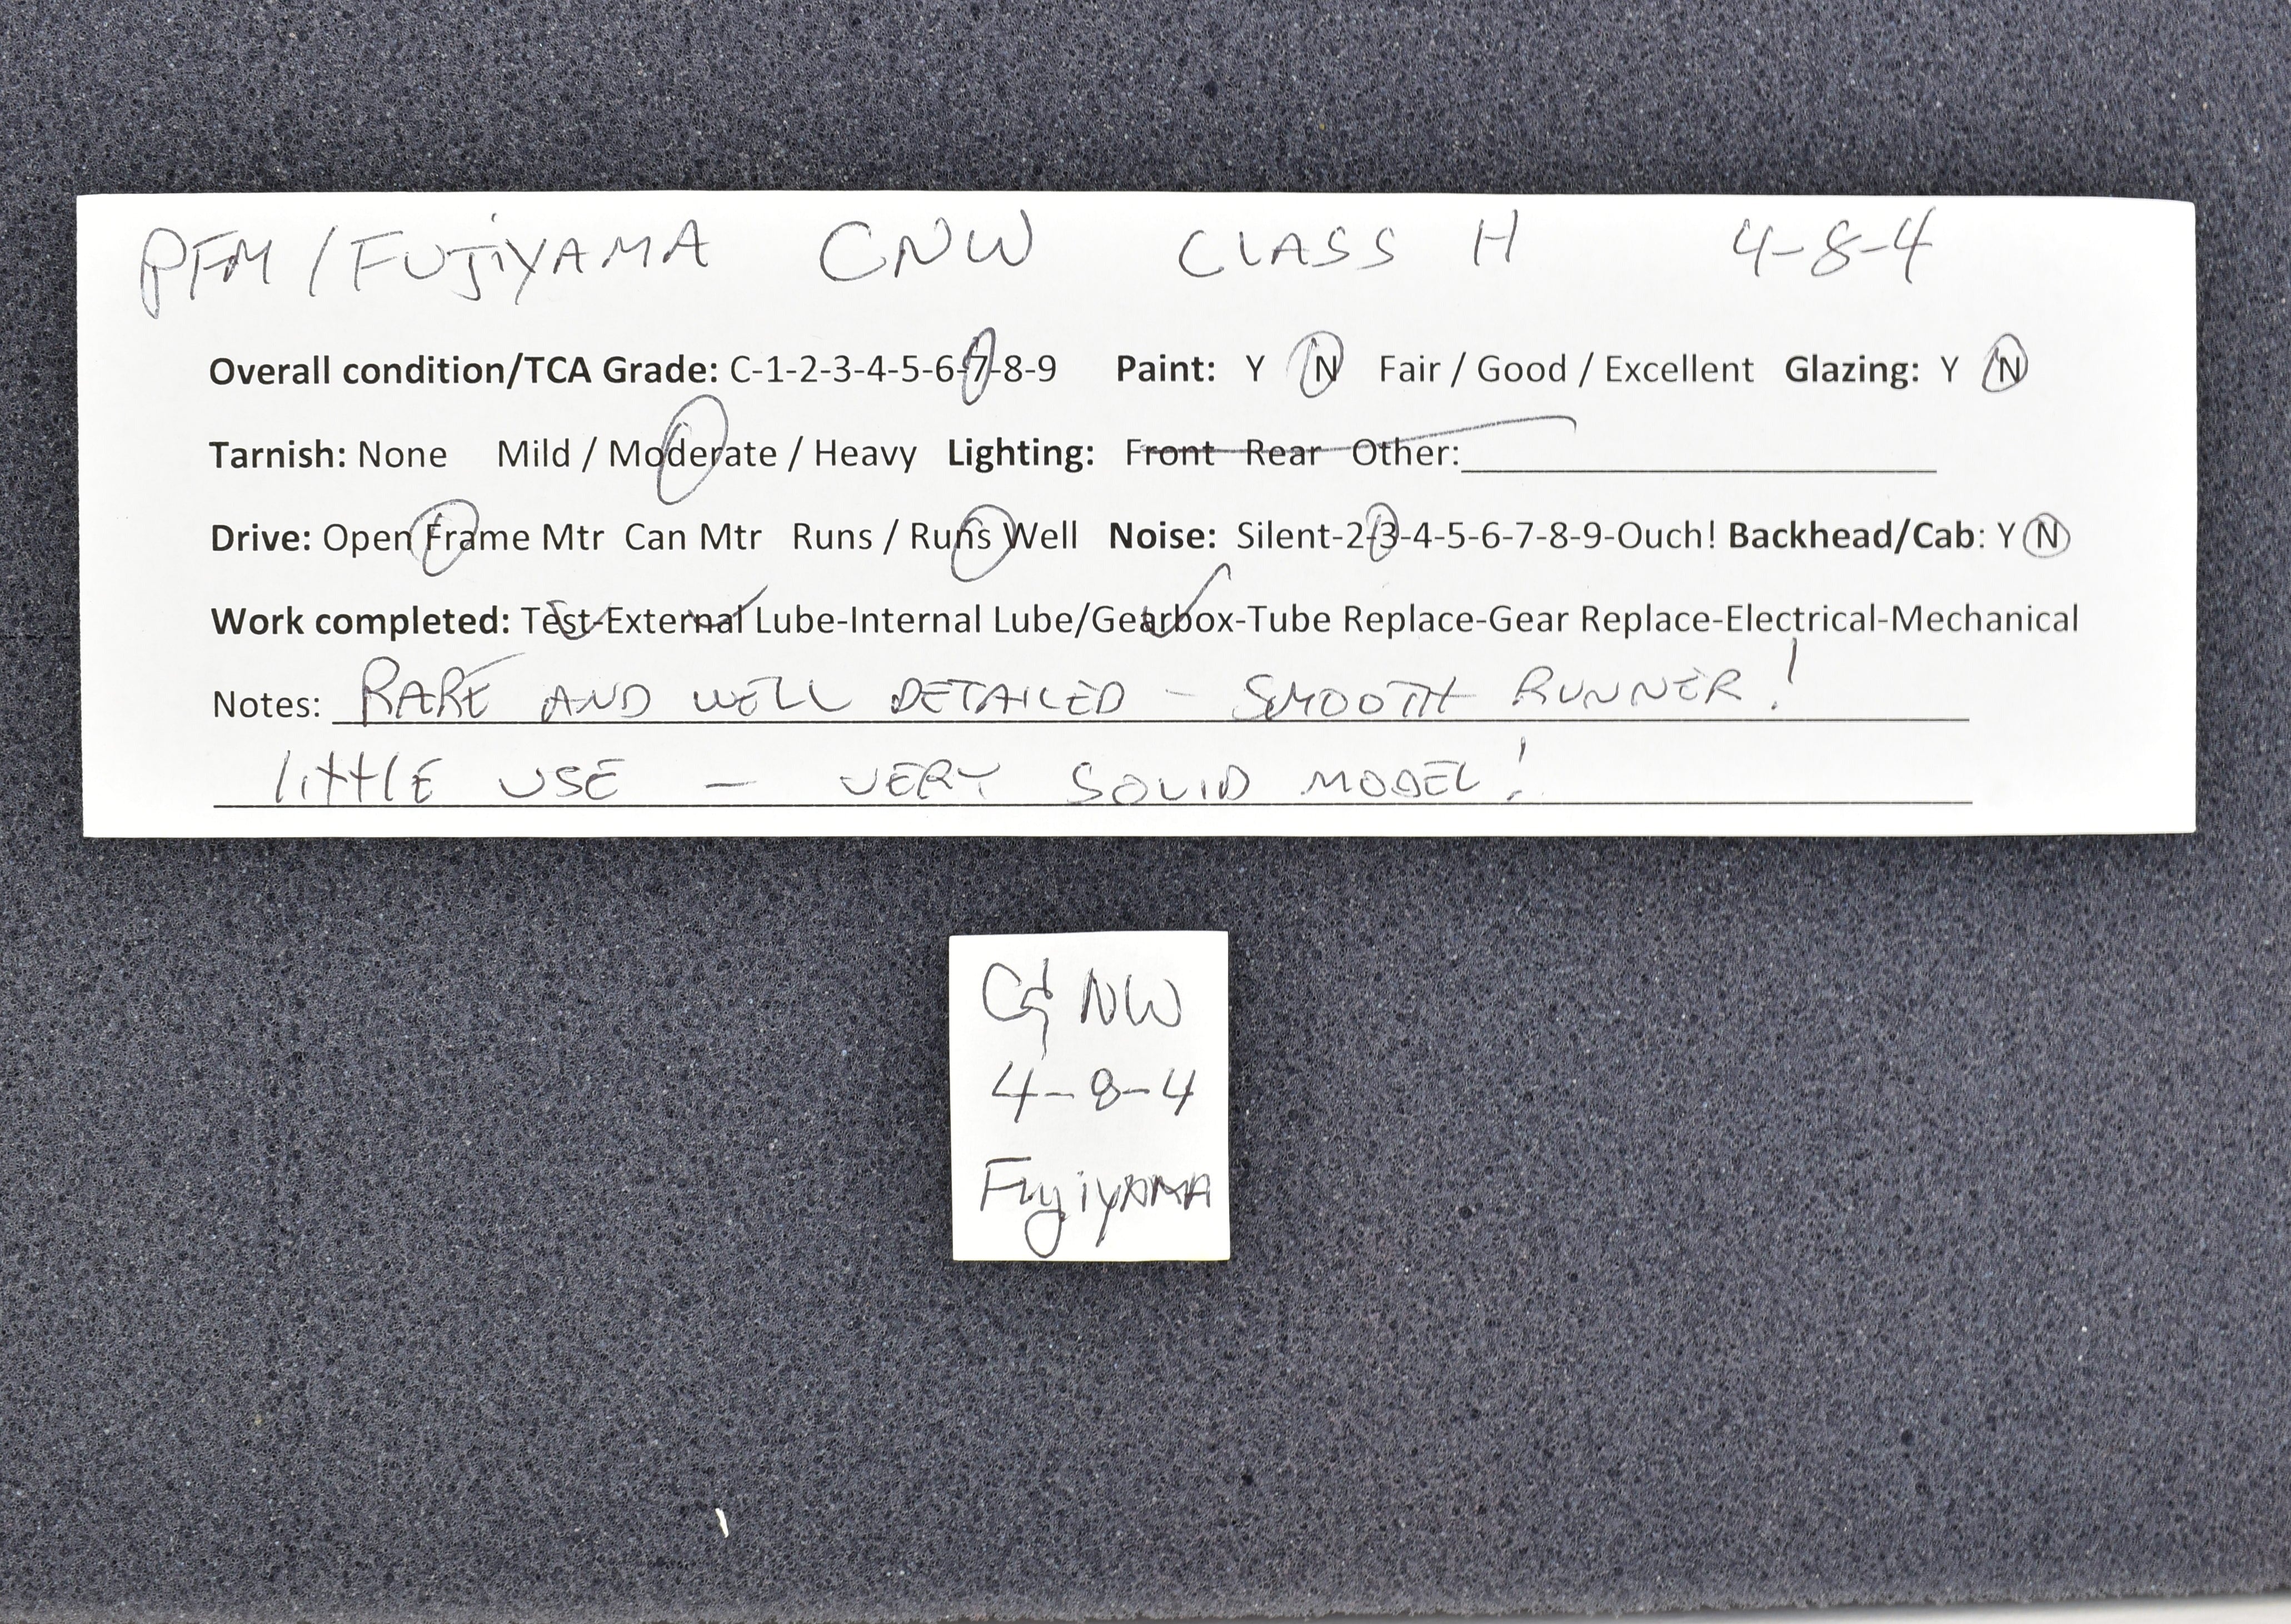 PFM / FUJiYAMA CNW CLASS H 4-8-4
Overall condition/TCA Grade: C-1-2-3-4-5-6-7-8-9 Paint: Y N Fair / Good / Excellent Glazing: Y N
Tarnish: None Mild / Moderate / Heavy Lighting: Front Rear Other:
Drive: Open Frame Mtr Can Mtr Runs / Runs Well Noise: Silent-2-3-4-5-6-7-8-9-Ouch! Backhead/Cab: Y N
Work completed: Test-External Lube-Internal Lube/Gearbox-Tube Replace-Gear Replace-Electrical-Mechanical
Notes: RARE AND WELL DETAILED - SMOOTH RUNNER!
LittlE USE - VERY SOLID MODEL!
C& NW
4-8-4
FujiyAMA